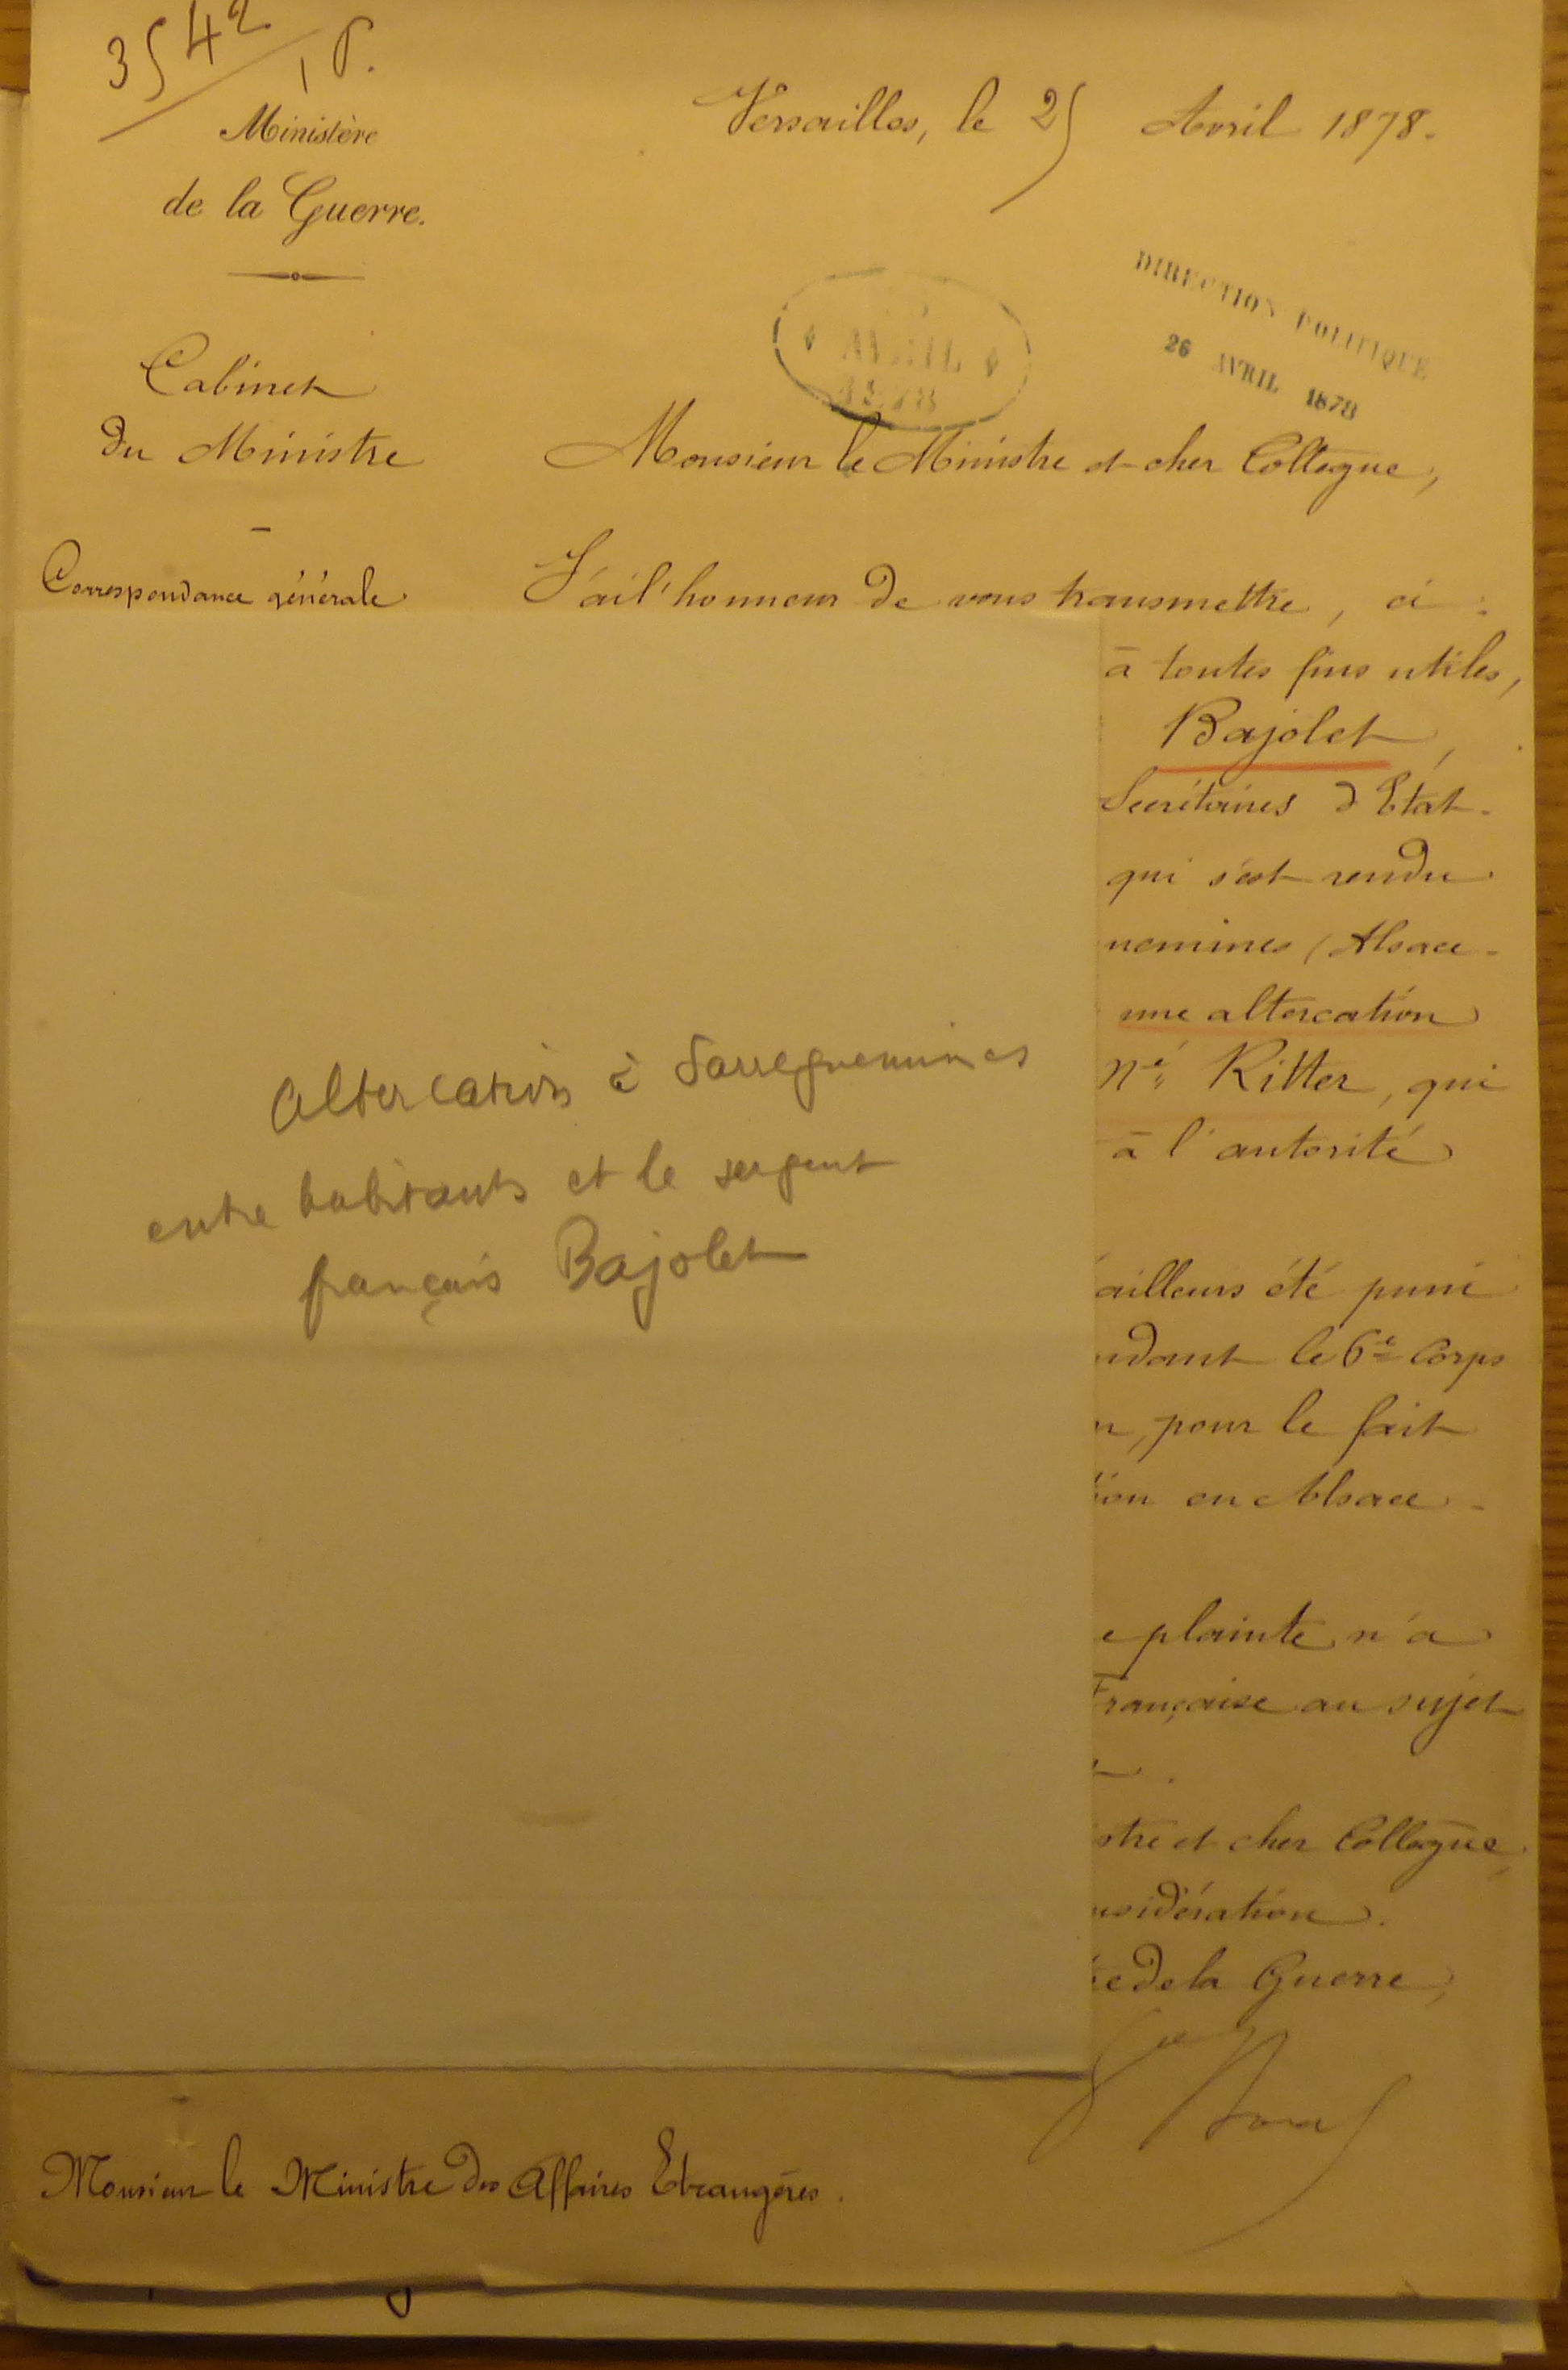 3542
Ministère
de la Guerre.
Versailles, le 25 Avril 1878.
AVRIL
1878
DIRECTION POLITIQUE
26 AVRIL 1878
Cabinet
du Ministre
Monsieur le Ministre et cher Collègue,
Correspondance générale
J'ai l'honneur de vous transmettre, ci-
à toutes fins utiles,
Bajolet,
Secrétaires d'Etat-
qui s'est rendu
uemines (Alsace-
une altercation
né Ritter, qui
à l'autorité
Altercation à Sarreguemines
entre habitants et le sergent
français Bajolet
ailleurs été puni
ndant le 6e Corps
n, pour le fait
ion en Alsace-
e plainte n'a
Française au sujet
t.
stre et cher Collègue,
nsidération.
re de la Guerre,
Monsieur le Ministre des Affaires Etrangères.